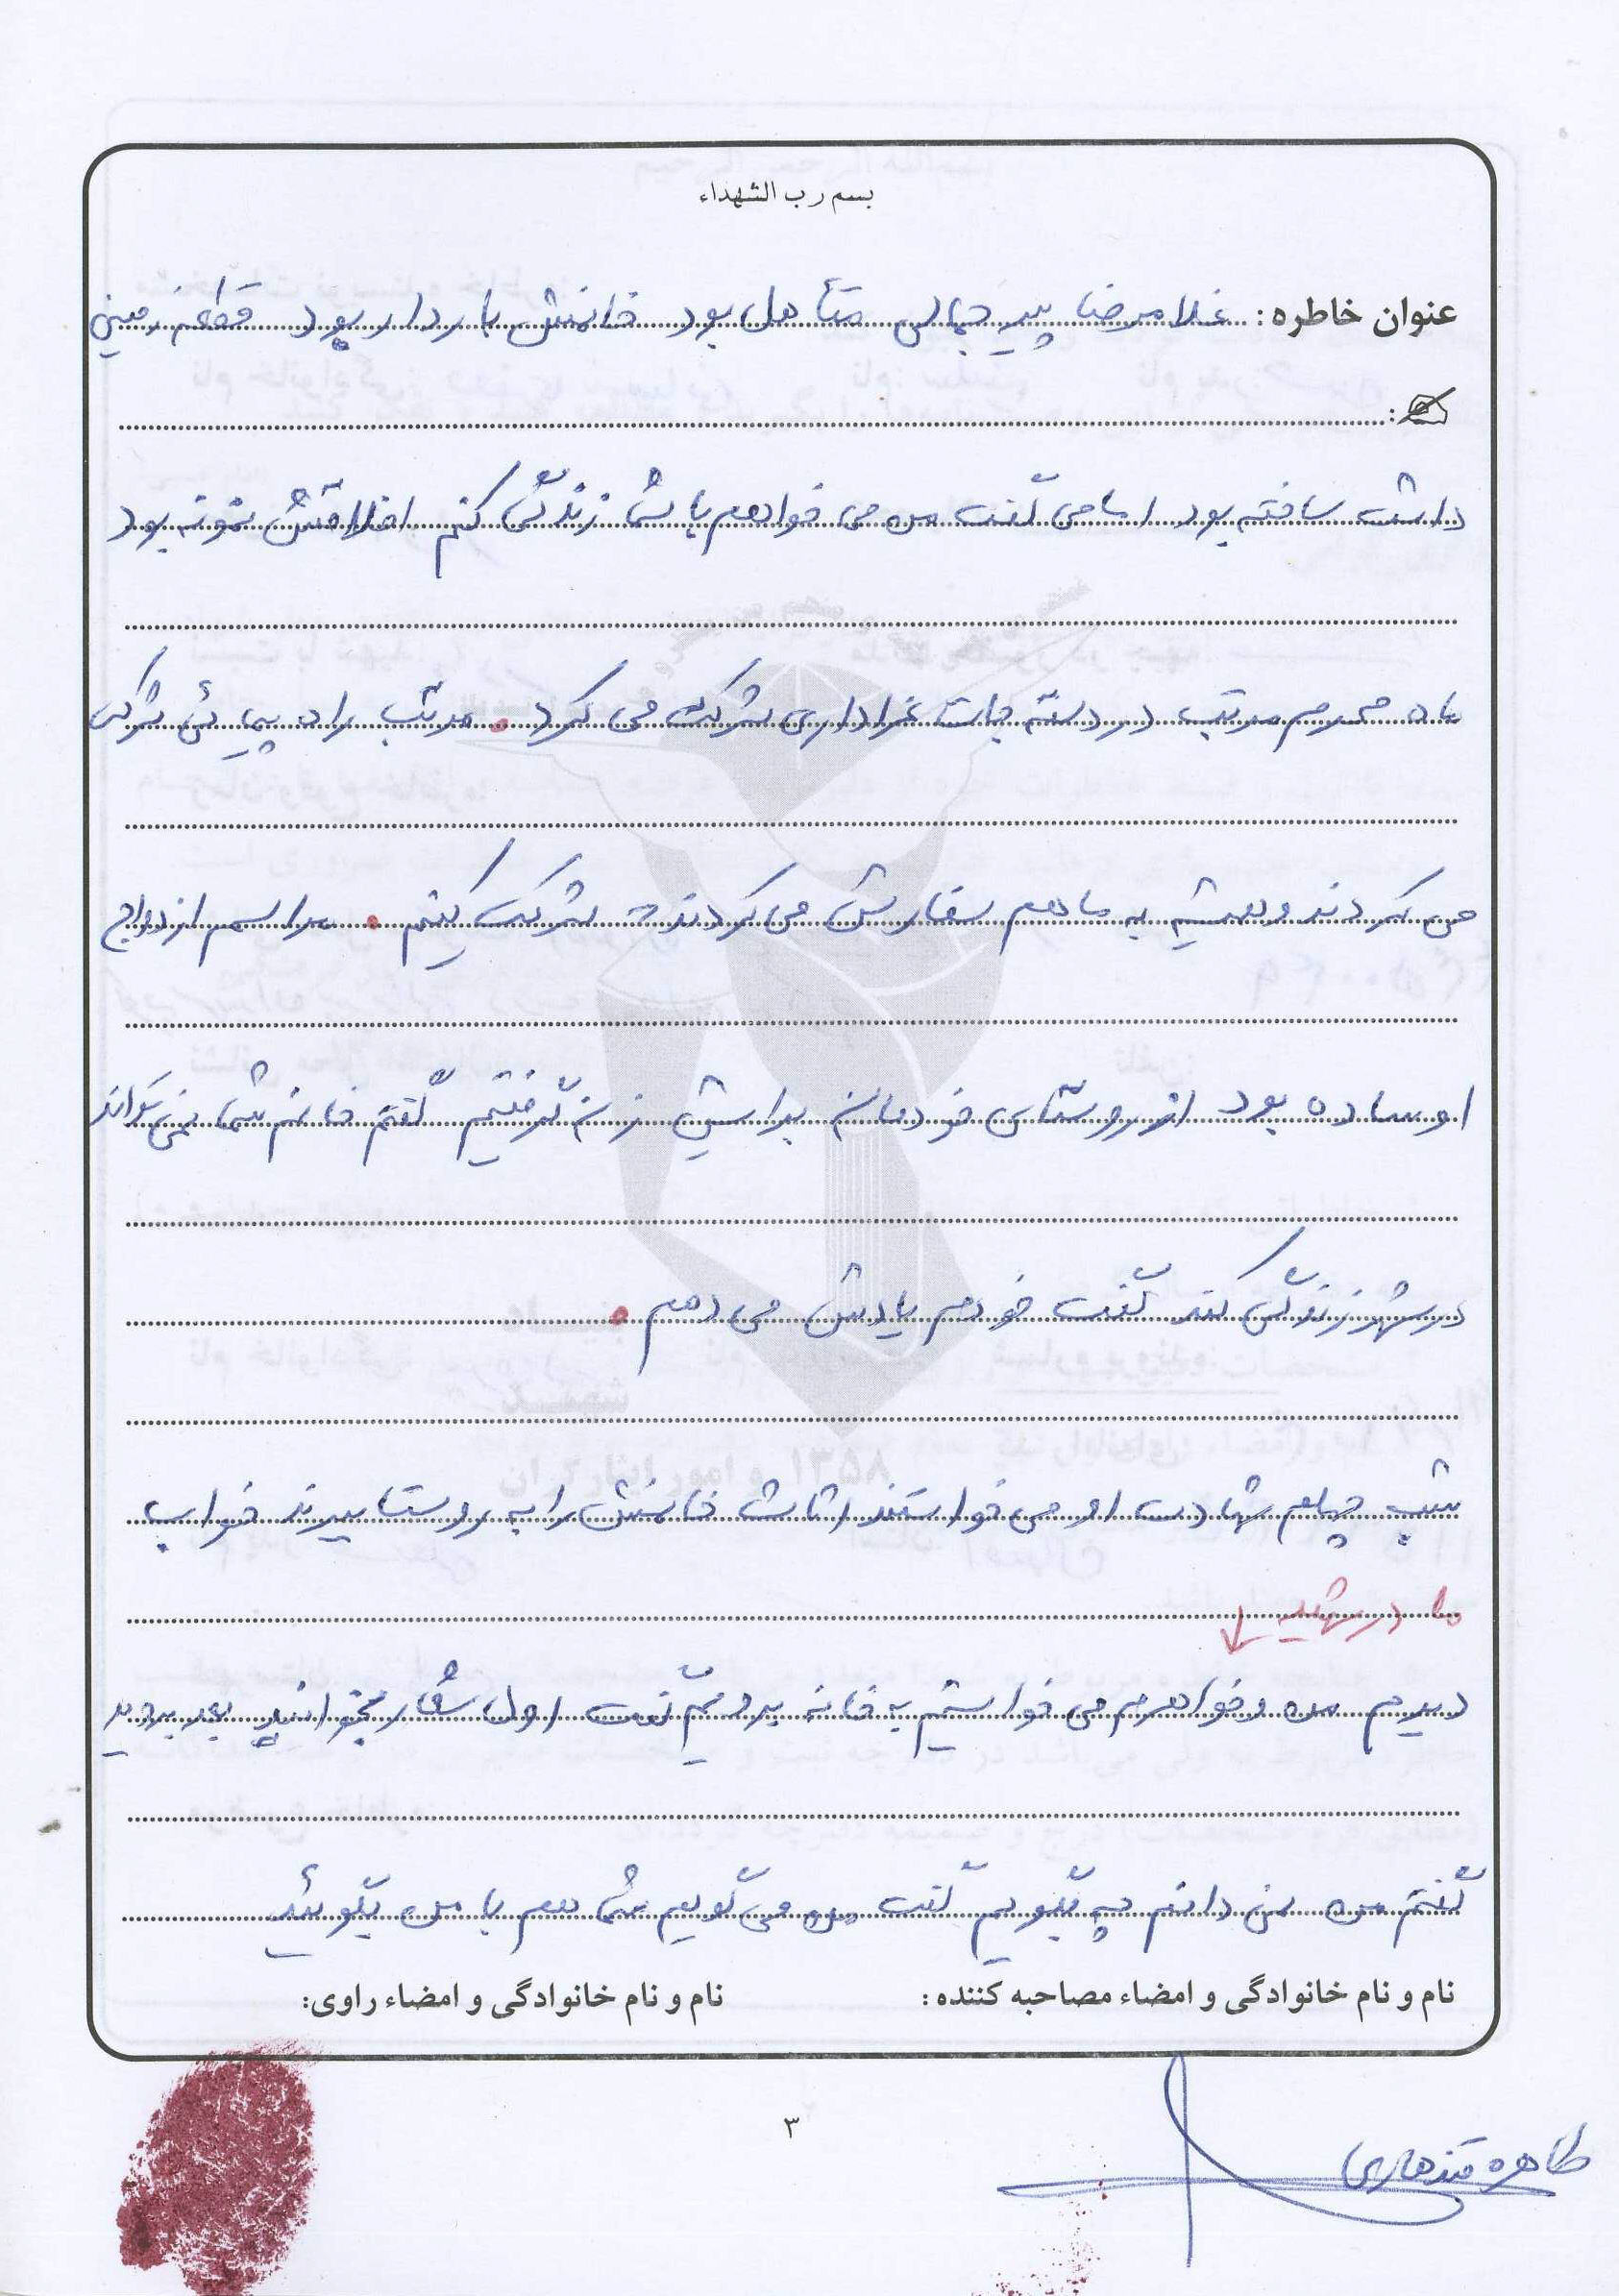 بسم رب الشهداء
عنوان خاطره: غلامرضا پیرجمالی متأهل بود خانمش باردار بود قطعه زمینی
داشت ساخته بود اما می گفت من می خواهم با شما زندگی کنم اخلاقش نمونه بود
ماه محرم مرتب در دسته جات عزاداری شرکت می کرد. مرتب راه پیمائی شرکت
می کردند و همیشه به ما هم سفارش می کردند شرکت کنیم. مراسم ازدواج
او ساده بود از روستای خودمان برایش زن گرفتیم گفتم خانم شما نمی تواند
در شهر زندگی کند گفت خودم یادش می دهم.
شب چهلم شهادت او می خواستند اثاث خانمش را به روستا ببرند خواب
مادر شهید ↓
دیدم من و خواهرم می خواستیم به خانه برویم گفت اول شعار بخوانید بعد بروید
گفتم من نمی دانم چه بگویم گفت من می گویم شما هم با من بگوئید
نام و نام خانوادگی و امضاء مصاحبه کننده: نام و نام خانوادگی و امضاء راوی:
۳
طاهره قندهاری